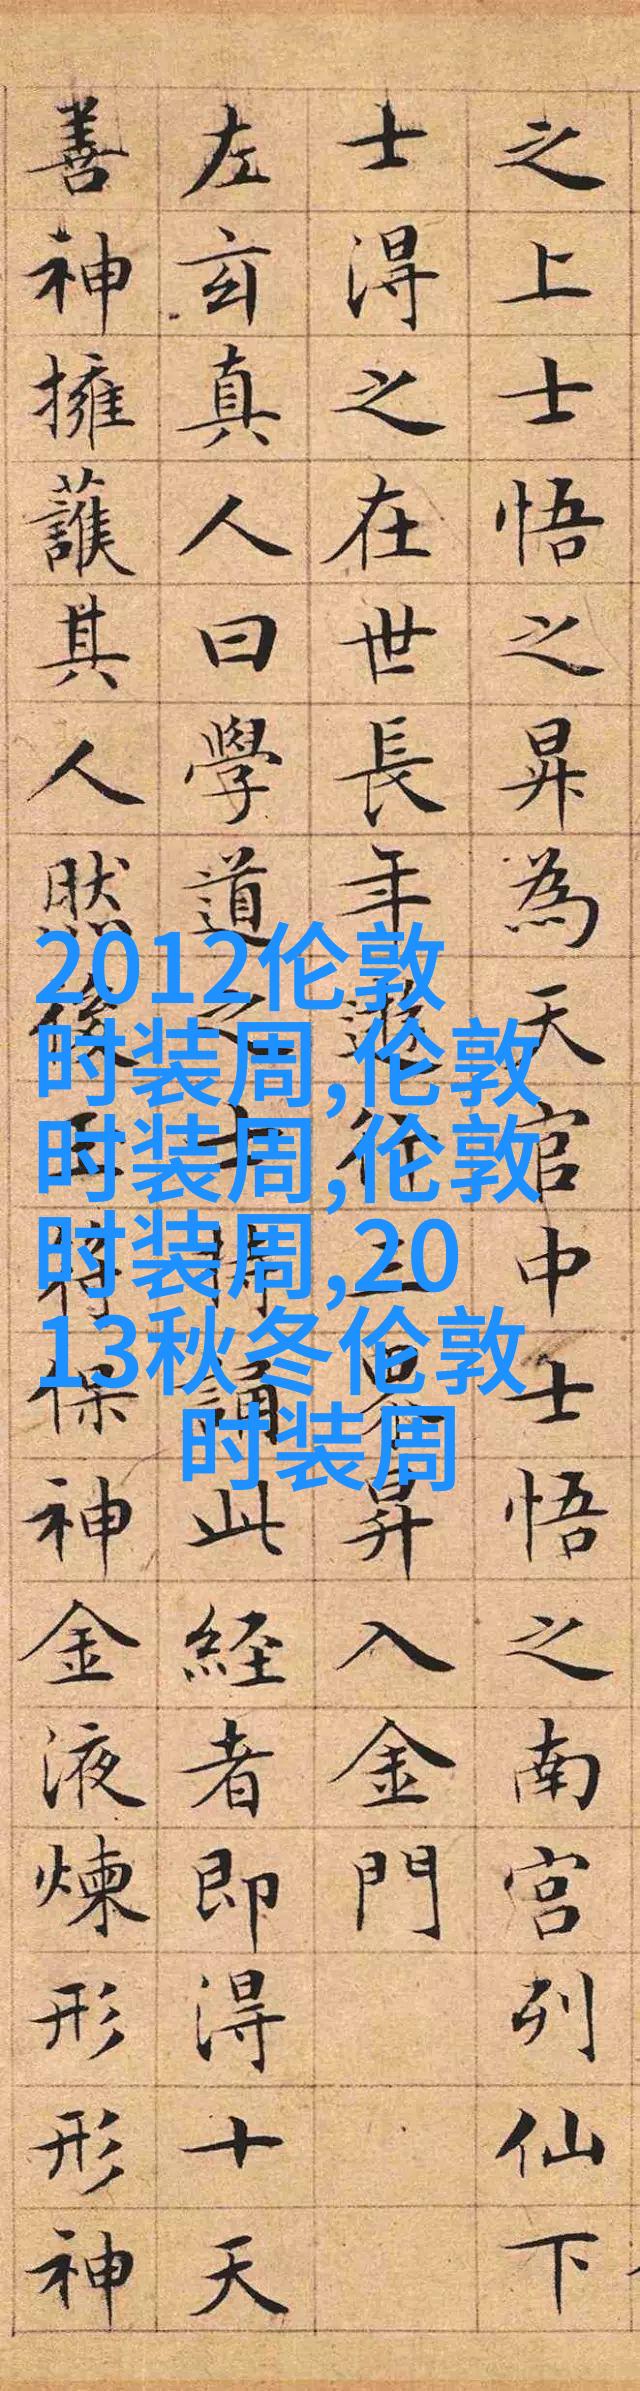 之上士悟之昇為天官中士悟之南宮列仙下
士得之在世長年遊行三界昇入金門
左玄真人曰學道之士持誦此經者即得十天
善神擁護其人然後玉符保神金液煉形形神
2012伦敦
时装周,伦敦
时装周,伦敦
时装周,20
13秋冬伦敦
时装周